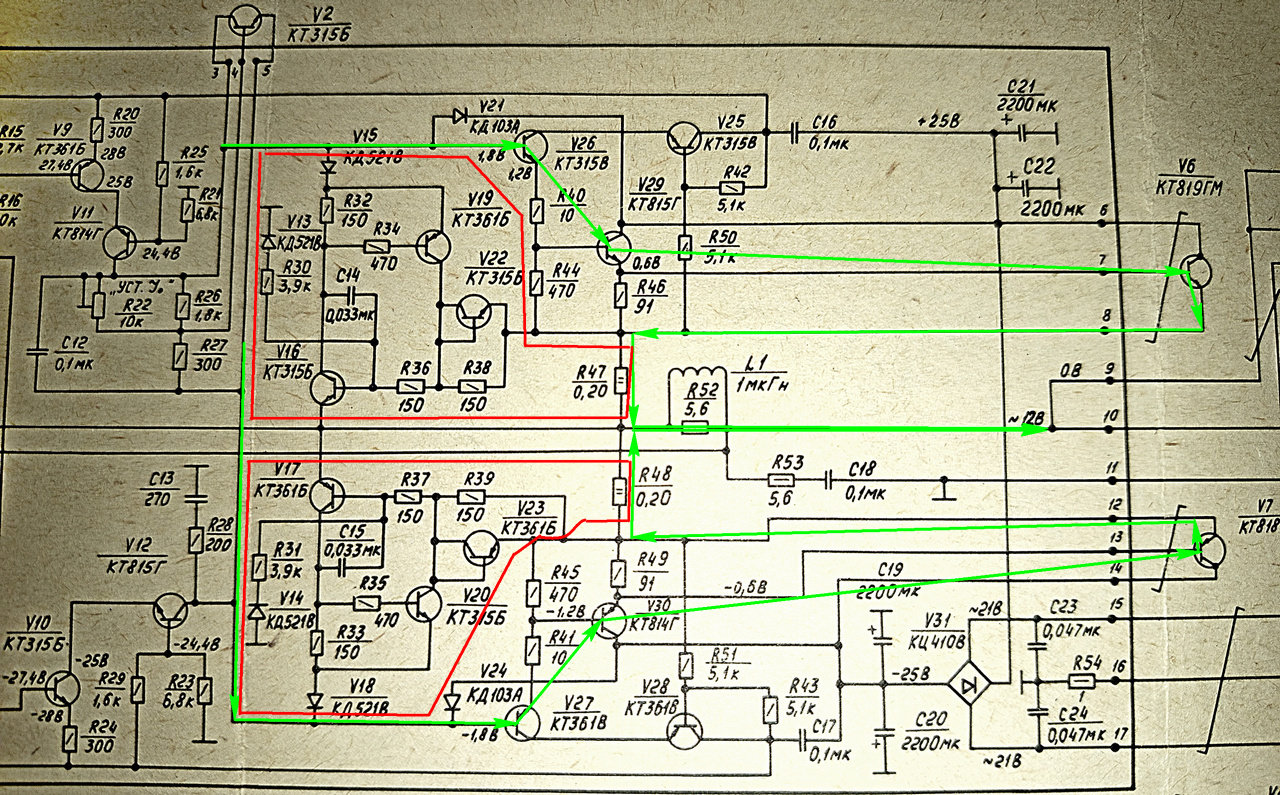 V2
КТ315Б
3 4 5
R15
R20
300
V9
КТ361Б
27,4В
28В
25В
R25
1,6к
R21
6,8к
R16
V11
КТ814Г
24,4В
„УСТ. У₀"
R22
10к
R26
1,8к
C12
0,1мк
R27
300
V15
КД521В
V21
КД103А
1,8В
1,2В
V26
КТ315В
V25
КТ315В
C16
0,1мк
+25В
C21
2200мк
C22
2200мк
V6
КТ819ГМ
R32
150
V19
КТ361Б
R40
10
V29
КТ815Г
R42
5,1к
V13
КД521В
R34
470
R30
3,9к
C14
0,033мк
V22
КТ315Б
R44
470
0,6В
R50
5,1к
R46
91
6
7
8
V16
КТ315Б
R36
150
R38
150
R47
0,20
L1
1мкГн
R52
5,6
0В
9
~12В
10
V17
КТ361Б
R37
150
R39
150
R48
0,20
R53
5,6
C18
0,1мк
11
C13
270
R28
200
C15
0,033мк
V23
КТ361Б
12
V7
КТ818
13
14
V12
КТ815Г
R31
3,9к
R35
470
R45
470
R49
91
-0,6В
C19
2200мк
V14
КД521В
V20
КТ315Б
-1,2В
V30
КТ814Г
~21В
C23
0,047мк
15
V31
КЦ410В
V10
КТ315Б
-24,4В
-25В
R33
150
R41
10
R51
5,1к
-27,4В
-28В
R29
1,6к
R23
6,8к
V18
КД521В
V24
КД103А
-1,8В
V27
КТ361В
V28
КТ361В
R43
5,1к
-25В
R54
1
16
R24
300
C17
0,1мк
C20
2200мк
C24
0,047мк
17
~21В